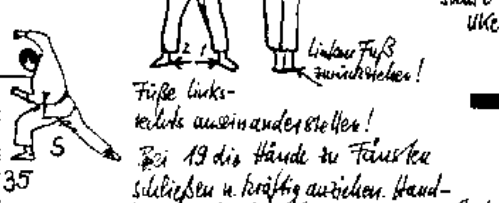 UKe
2 1
linken Fuß
zurückziehen!
Füße links-
rechts auseinanderstellen!
S
Bei 19 die Hände zu Fäusten
35
schließen u. kräftig anziehen. Hand-